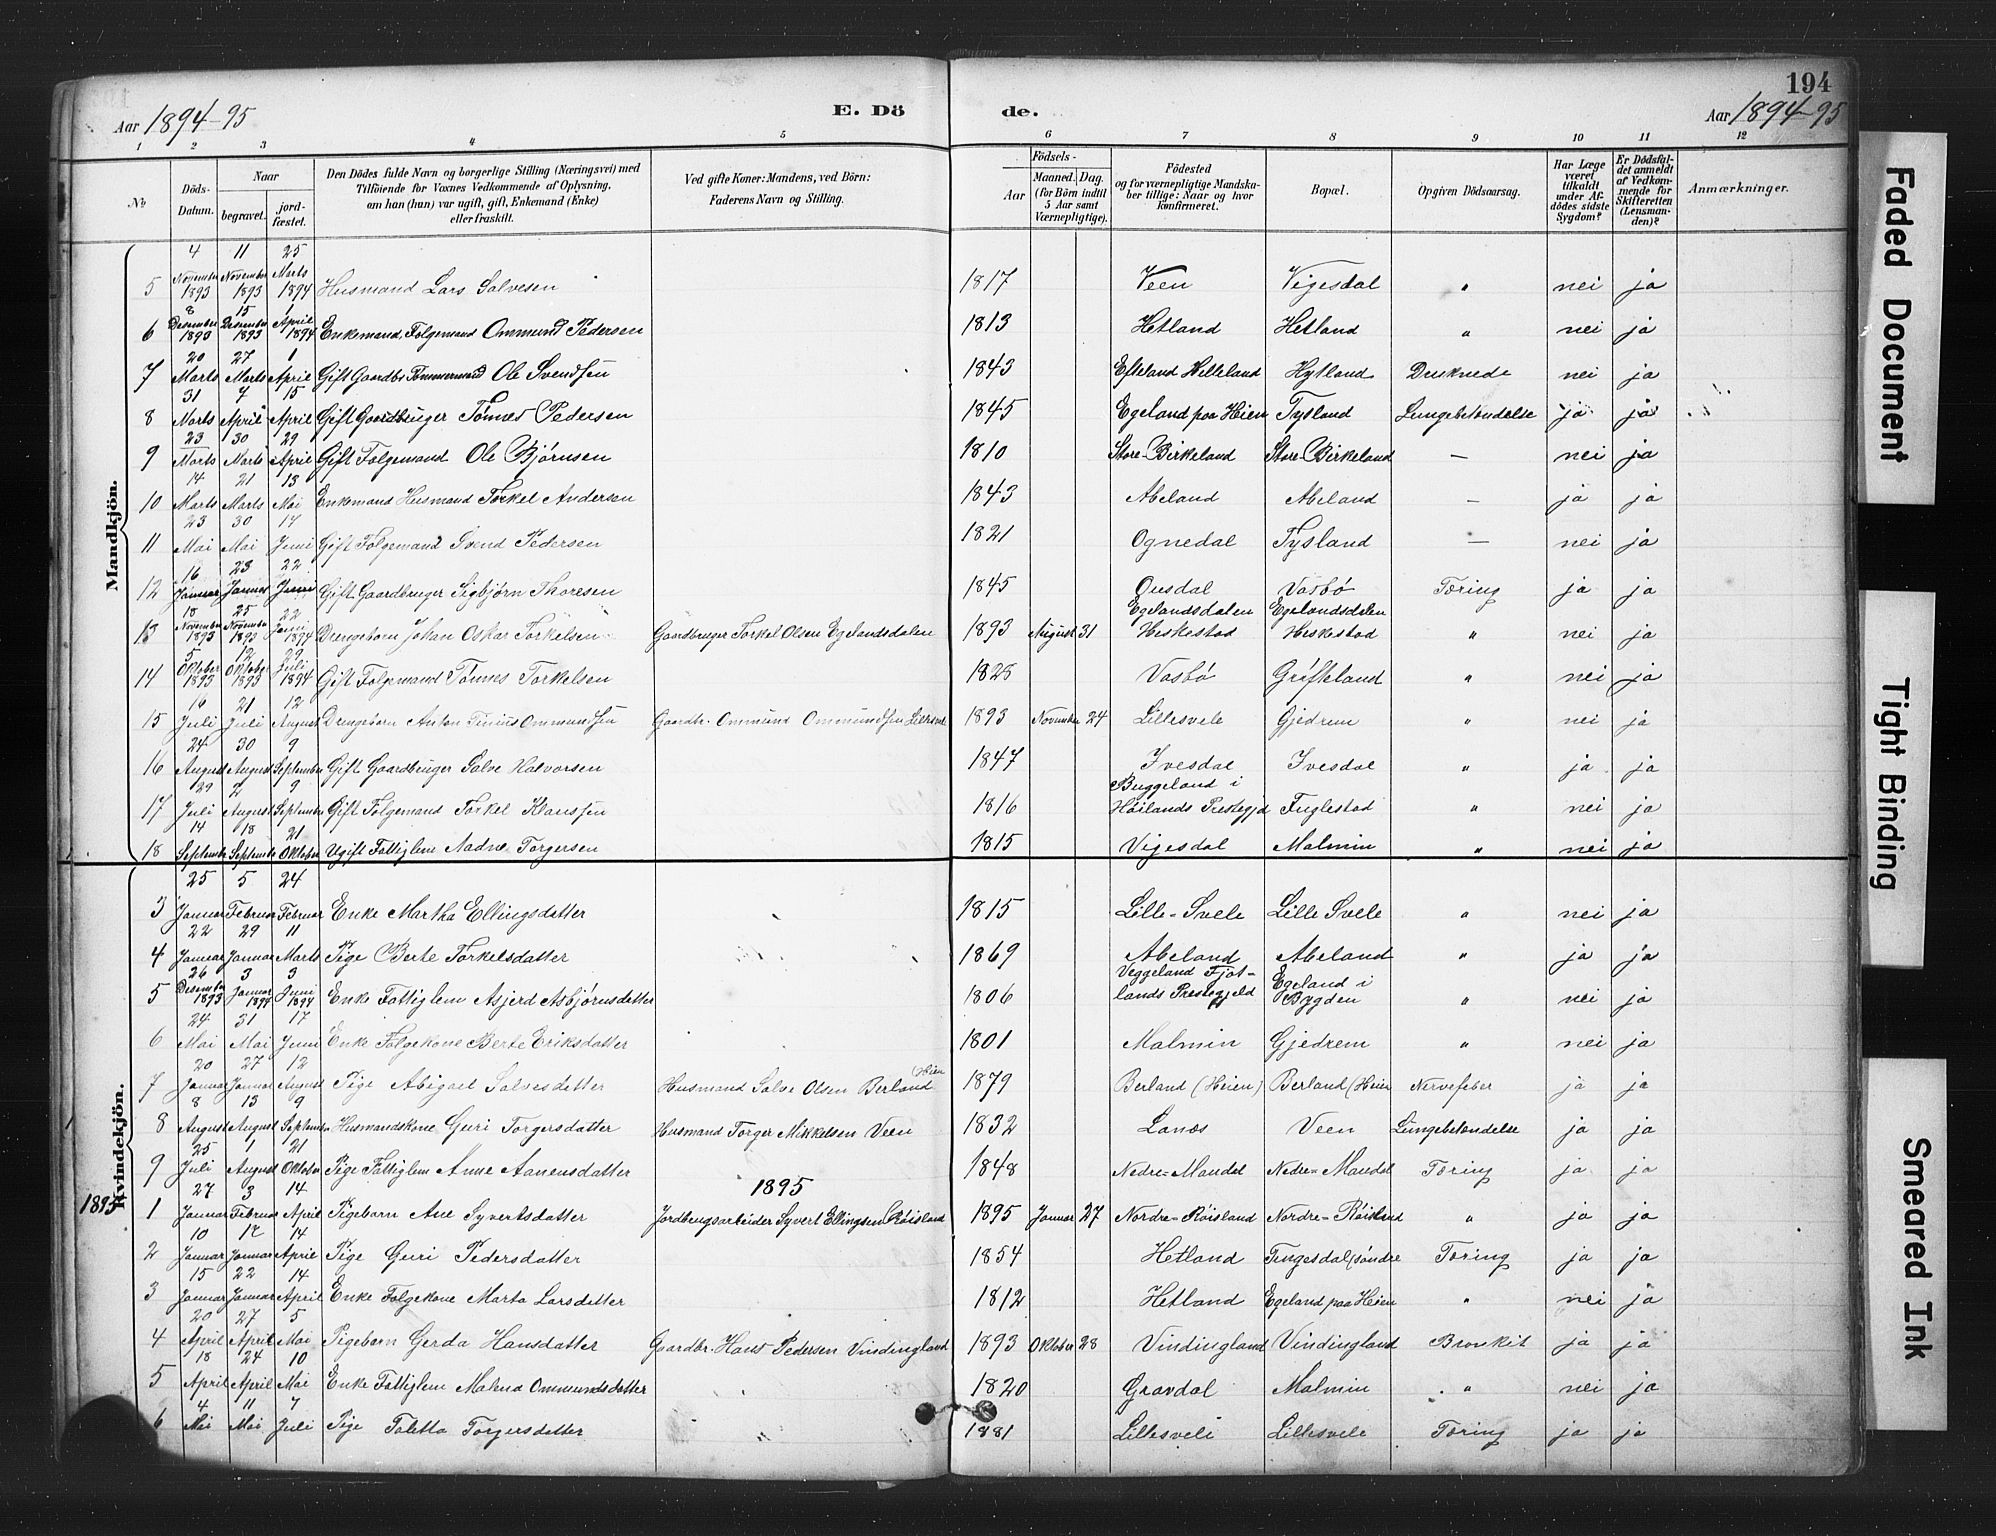 194
Aar 1894-95
E. Dö
de.
Aar 1894-95
1 2 3 4 5 6 7 8 9 10 11 12
No
Döds-Datum.
Naar
begravet.
jord-fæstet.
Den Dödes fulde Navn og borgerlige Stilling (Næringsvei) med
Tilföiende for Voxnes Vedkommende af Oplysning,
om han (hun) var ugift, gift, Enkemand (Enke)
eller fraskilt.
Ved gifte Koner: Mandens, ved Börn:
Faderens Navn og Stilling.
Födsels-
Aar
Maaned. Dag.
(for Börn indtil
5 Aar samt
Værnepligtige).
Födested
og for værnepligtige Mandska-
ber tillige: Naar og hvor
konfirmeret.
Bopæl.
Opgiven Dödsaarsag.
Har Læge
været
tilkaldt
under Af-
dödes sidste
Sygdom?
Er Dödsfal-
det anmeldt
af Vedkom-
mende for
Skifteretten
(Lensman-
den)?
Anmærkninger.
Mandkjön.
4 11 25
5 November 1893 November 1893 Marts 1894 Husmand Lars Salvesen 1817 Veen Vigesdal " nei ja
8 15 1
6 Desember 1893 Desember 1893 April 1894 Enkemand, Folgemand Ommund Pedersen 1813 Hetland Hetland " nei ja
20 27 1
7 Marts Marts April Gift Gaardbr Tømmermand Ole Svendsen 1843 Efteland Helleland Hytland Druknede nei ja
31 4 15
8 Marts April April Gift Gaardbruger Tønnes Pedersen 1845 Egeland paa Heien Tysland Lungebetændelse ja ja
23 30 29
9 Marts Marts April Gift Folgemand Ole Bjørnsen 1810 Store-Birkeland Store-Birkeland — nei ja
14 21 13
10 Marts Marts Mai Enkemand Husmand Torkel Andersen 1843 Abeland Abeland — ja ja
23 30 17
11 Mai Mai Juni Gift Folgemand Svend Pedersen 1821 Ognedal Tysland — nei ja
16 23 22
12 Januar Januar Juni Gift Gaardbruger Sigbjørn Thoresen 1845 Ousdal Vasbø Tæring ja ja
18 25 22
13 November 1893 November 1893 Juni 1894 Drengebarn Johan Oskar Torkelsen Gaardbruger Torkel Olsen Egelandsdalen 1893 August 31 Egelandsdalen Heskestad Egelandsdalen Heskestad " nei ja
5 12 29
14 Oktober 1893 Oktober 1893 Juli 1894 Gift Folgemand Tønnes Torkelsen 1825 Vasbø Grøfteland " nei ja
16 21 12
15 Juli Juli August Drengebarn Anton Tinius Ommundsen Gaardbr. Ommund Ommundsen Lillesvele 1893 November 24 Lillesvele Gjedrem " nei ja
24 30 9
16 August August September Gift Gaardbruger Salve Halvorsen 1847 Ivesdal Ivesdal " ja ja
29 2 9
17 Juli August September Gift Folgemand Torkel Klaussen 1816 Buggeland i Høilands Prestegjd Fuglestad " nei ja
14 18 21
18 September September Oktober Ugift Fattiglem Aadne Torgersen 1815 Vigesdal Malmin " nei ja
Kvindekjön.
25 5 24
3 Januar Februar Februar Enke Martha Ellingsdatter 1815 Lille-Svele Lille Svele " nei ja
22 29 11
4 Januar Januar Marts Pige Berte Torkelsdatter 1869 Abeland Abeland " ja ja
26 3 3
5 Desember 1893 Januar 1894 Juni 1894 Enke Fattiglem Asjerd Asbjørnsdatter 1806 Veggeland Fjot-lands Prestegjeld Egeland i Bygden " nei ja
24 31 17
6 Mai Mai Juni Enke Folgekone Berte Eriksdatter 1801 Malmin Gjedrem " nei ja
20 27 12
7 Januar Januar August Pige Abigael Salvesdatter Husmand Salve Olsen Berland (Heien 1879 Berland (Heien) Berland (Heien Nervefeber ja ja
8 13 9
8 August August September Husmandskone Guri Torgersdatter Husmand Torger Mikkelsen Veen 1832 Lanes Veen Lungebetændelse ja ja
25 1 21
9 Juli August Oktober Pige Fattiglem Anne Aanensdatter 1848 Nedre-Maudal Nedre-Maudal Tæring ja ja
1895
27 3 14
1895
1 Januar Februar April Pigebarn Ane Syvertsdatter Jordbrugsarbeider Syvert Ellingsen Røisland 1895 Januar 27 Nordre-Røisland Nordre-Røisland " ja ja
10 17 14
2 Januar Januar April Pige Guri Pedersdatter 1854 Hetland Tengesdal (søndre Tæring ja ja
15 22 14
3 Januar Januar April Enke Folgekone Marta Larsdatter 1812 Hetland Egeland paa Heien " nei ja
20 27 5
4 April April Mai Pigebarn Gerda Hansdatter Gaardbr. Hans Pedersen Vindingland 1893 Oktober 28 Vindingland Vindingland Bronkit ja ja
18 24 10
5 April April Mai Enke Fattiglem Malena Ommundsdatter 1820 Gravdal Malmin " nei ja
4 11 7
6 Mai Mai Juli Pige Toletta Torgersdatter 1881 Lillesveli Lillesvele Tæring ja ja
Faded Document
Tight Binding
Smeared Ink